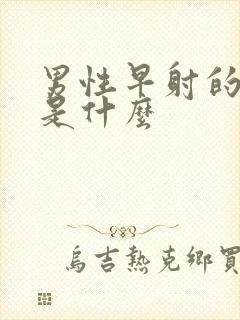 男性早射的
是什麼
烏吉熱克鄉買